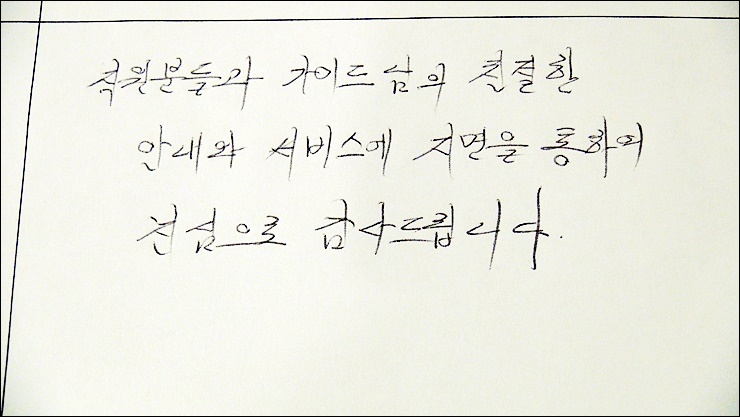 직원분들과 가이드님의 친절한
안내와 서비스에 지면을 통하여
진심으로 감사드립니다.